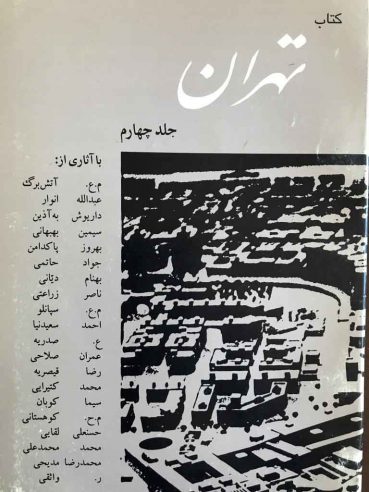 کتاب
تهران
جلد چهارم
با آثاری از:
م.ع. آتش‌برگ
عبدالله انوار
داریوش به‌آذین
سیمین بهبهانی
بهروز پاکدامن
جواد حاتمی
بهنام دیّانی
ناصر زراعتی
م.ع. سپانلو
احمد سعیدنیا
ع. صدریه
عمران صلاحی
رضا قیصریه
محمد کتیرایی
سیما کوبان
م.ح. کوهستانی
حسنعلی لقایی
محمد محمدعلی
محمدرضا مدیحی
ر. واثقی